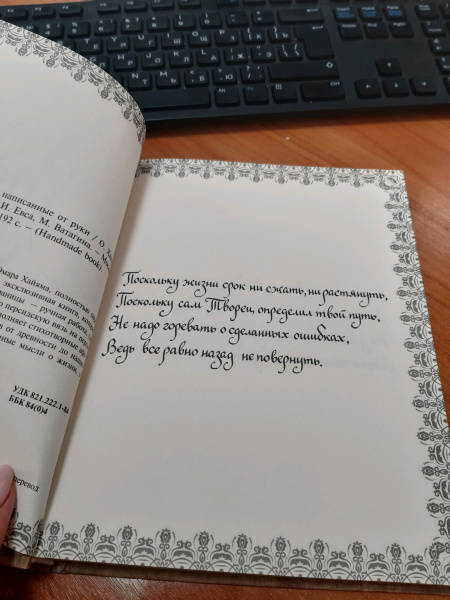 написанные от руки / О.
И. Евса, М. Ватагина. –
192 с. – (Handmade book)
Омара Хайяма, полностью
эксклюзивная книга,
страницы — ручная
персидскую вязь на
стихотворные
от древности до
мысли о жизни,
УДК 821.222.1-
ББК 84(0)4
перевод
Поскольку жизни срок ни сжать, ни растянуть,
Поскольку сам Творец определил твой путь,
Не надо горевать о сделанных ошибках,
Ведь все равно назад не повернуть.